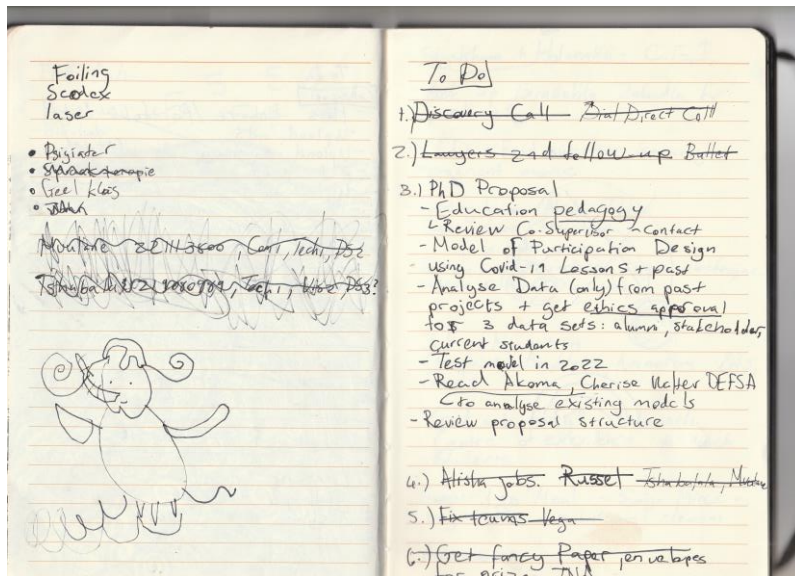 Foiling
Scodex
laser
• Psigiater
• Spraakterapie
• Geel kleis
Mvutare 3500, Cani, Techi, DS2
Techi, DS3?
To Do
1.) Discovery Call Dial Direct Call
2.) Lawyers 2nd follow up Ballet
3.) PhD Proposal
- Education pedagogy
Review Co-Supervisor contact
- Model of Participation Design
using Covid-19 Lessons + past
- Analyse Data (only) from past
projects + get ethics approval
for 3 data sets: alumni, stakeholder,
current students
- Test model in 2022
- Read Akoma, Cherise DEFSA
to analyse existing models
- Review proposal structure
4.) Alisha jobs. Russel Tshabalala,
5.) Fix Vega
6.) Get fancy Paper, envelopes
for prize